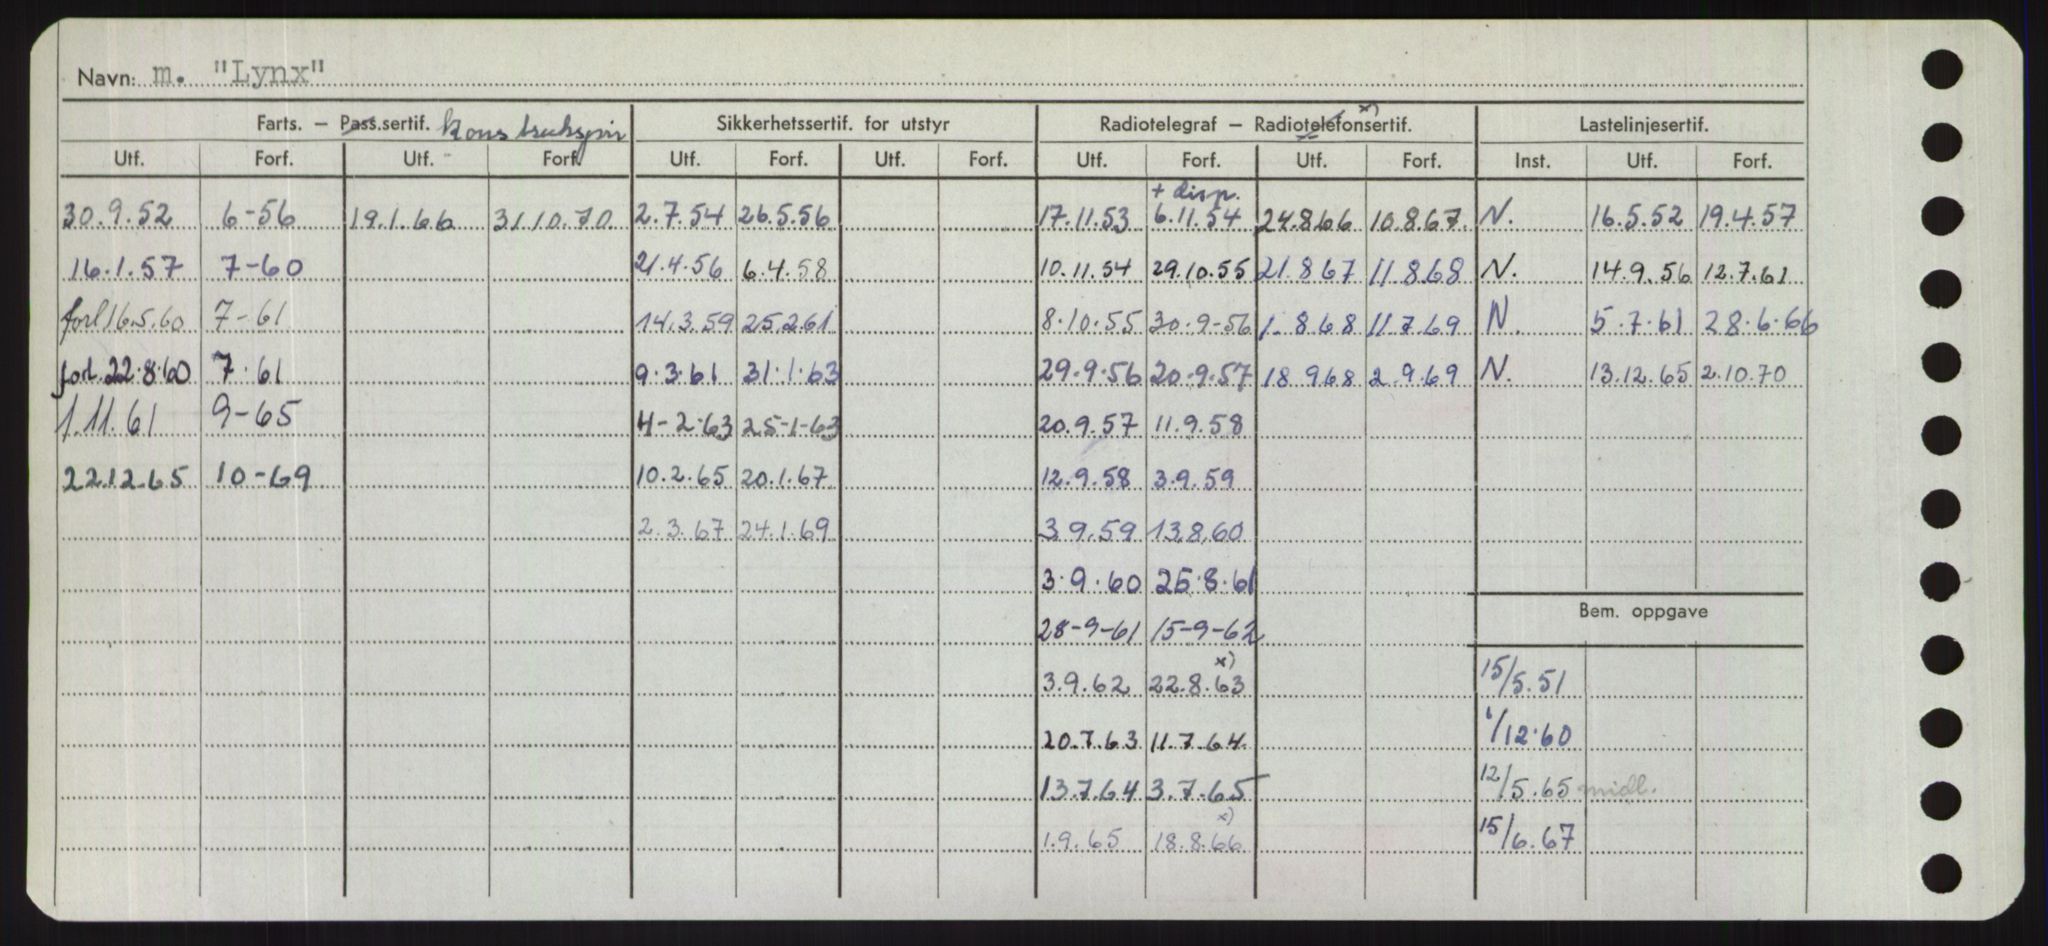 Navn: m. "Lynx"
Farts. – Pass.sertif. konstruksjon Sikkerhetssertif. for utstyr Radiotelegraf – Radiotelefonsertif. x) Lastelinjesertif.
Utf. Forf. Utf. Forf. Utf. Forf. Utf. Forf. Utf. Forf. Utf. Forf. Inst. Utf. Forf.
+ disp.
30.9.52 6-56 19.1.66 31.10.70. 2.7.54 26.5.56 17.11.53 6.11.54 24.8.66 10.8.67. N. 16.5.52 19.4.57
16.1.57 7-60 21.4.56 6.4.58 10.11.54 29.10.55 21.8.67 11.8.68 N. 14.9.56 12.7.61
forl 16.5.60 7-61 14.3.59 25.2.61 8.10.55 30.9-56 1.8.68 11.7.69 N. 5.7.61 28.6.66
forl. 22.8.60 7.61 9.3.61 31.1.63 29.9.56 20.9.57 18.9.68 2.9.69 N. 13.12.65 2.10.70
1.11.61 9-65 4-2-63 25-1-63 20.9.57 11.9.58
22.12.65 10-69 10.2.65 20.1.67 12.9.58 3.9.59
2.3.67 24.1.69 3.9.59 13.8.60
3.9.60 25.8.61
Bem. oppgave
28-9-61 15-9-62
3.9.62 22.8.63 x) 15/5.51
20.7.63 11.7.64. 6/12.60
13.7.64 3.7.65 12/5.65 midl.
1.9.65 18.8.66 x) 15/6.67